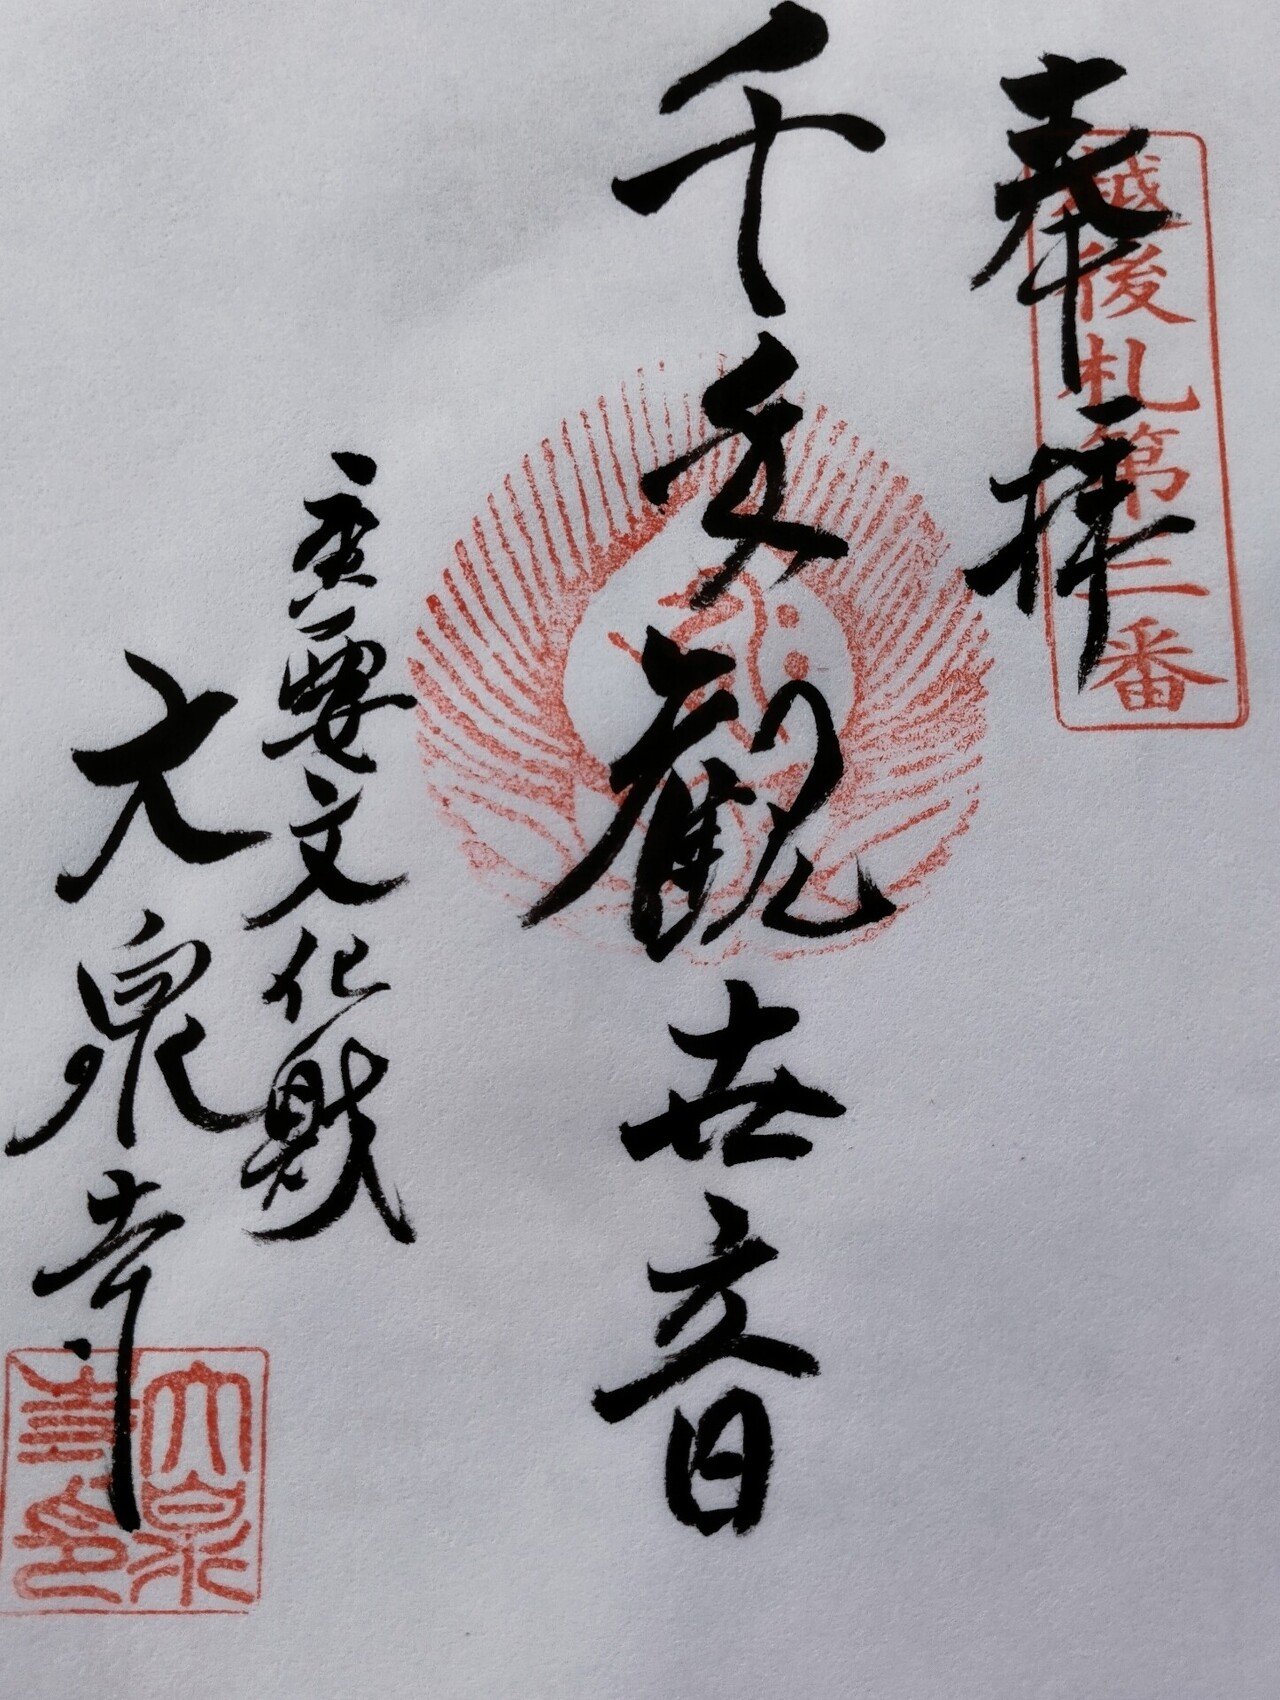 奉拝
越後札第三番
千手觀世音
重要文化財
大泉寺
大泉
寺印